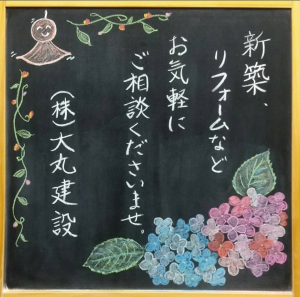 新築、
リフォームなど
お気軽に
ご相談くださいませ。
(株)大丸建設